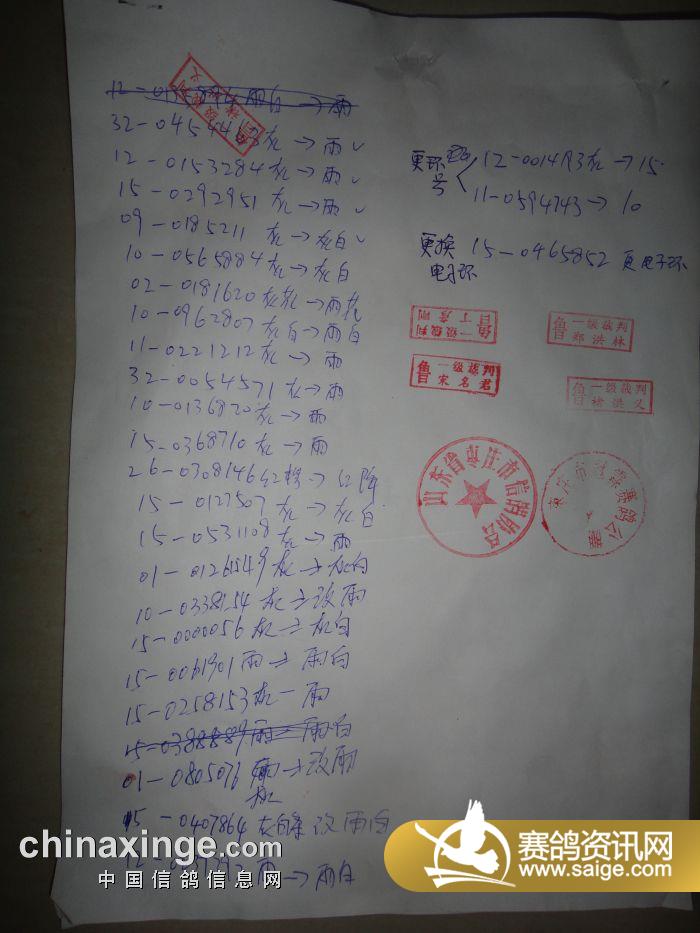 32-0454463灰→雨✓
12-0153284灰→雨✓
15-0292951灰→雨✓
09-0185211 灰→灰白✓
10-0565884灰→灰白
02-0181620灰花→雨花
10-0962807灰白→雨白
11-0221212灰→雨
32-0054571灰→雨
10-0136820灰→雨
15-0368710灰→雨
26-0308146红 → 红
15-0127507 灰→灰白
15-0531108灰→雨
01-0126549灰→灰白
10-0338154 灰→改雨
15-0000056灰→灰白
15-0061901雨→雨白
15-0258153灰-雨
15-0388889雨 雨白
01-0805076 →改雨
灰
15-0407864灰白 改雨白
雨→雨白
更环号 12-0014 灰→15
11-0594743→10
更换电子环 15-0465852 更电子环
鲁 一级裁判
鲁 一级裁判 郑洪林
鲁 一级裁判 宋名君
鲁 一级裁判 徐洪义
山东省枣庄市信鸽协会
枣庄市 赛鸽公棚
chinaxinge.com
中国信鸽信息网
赛鸽资讯网
www.saige.com